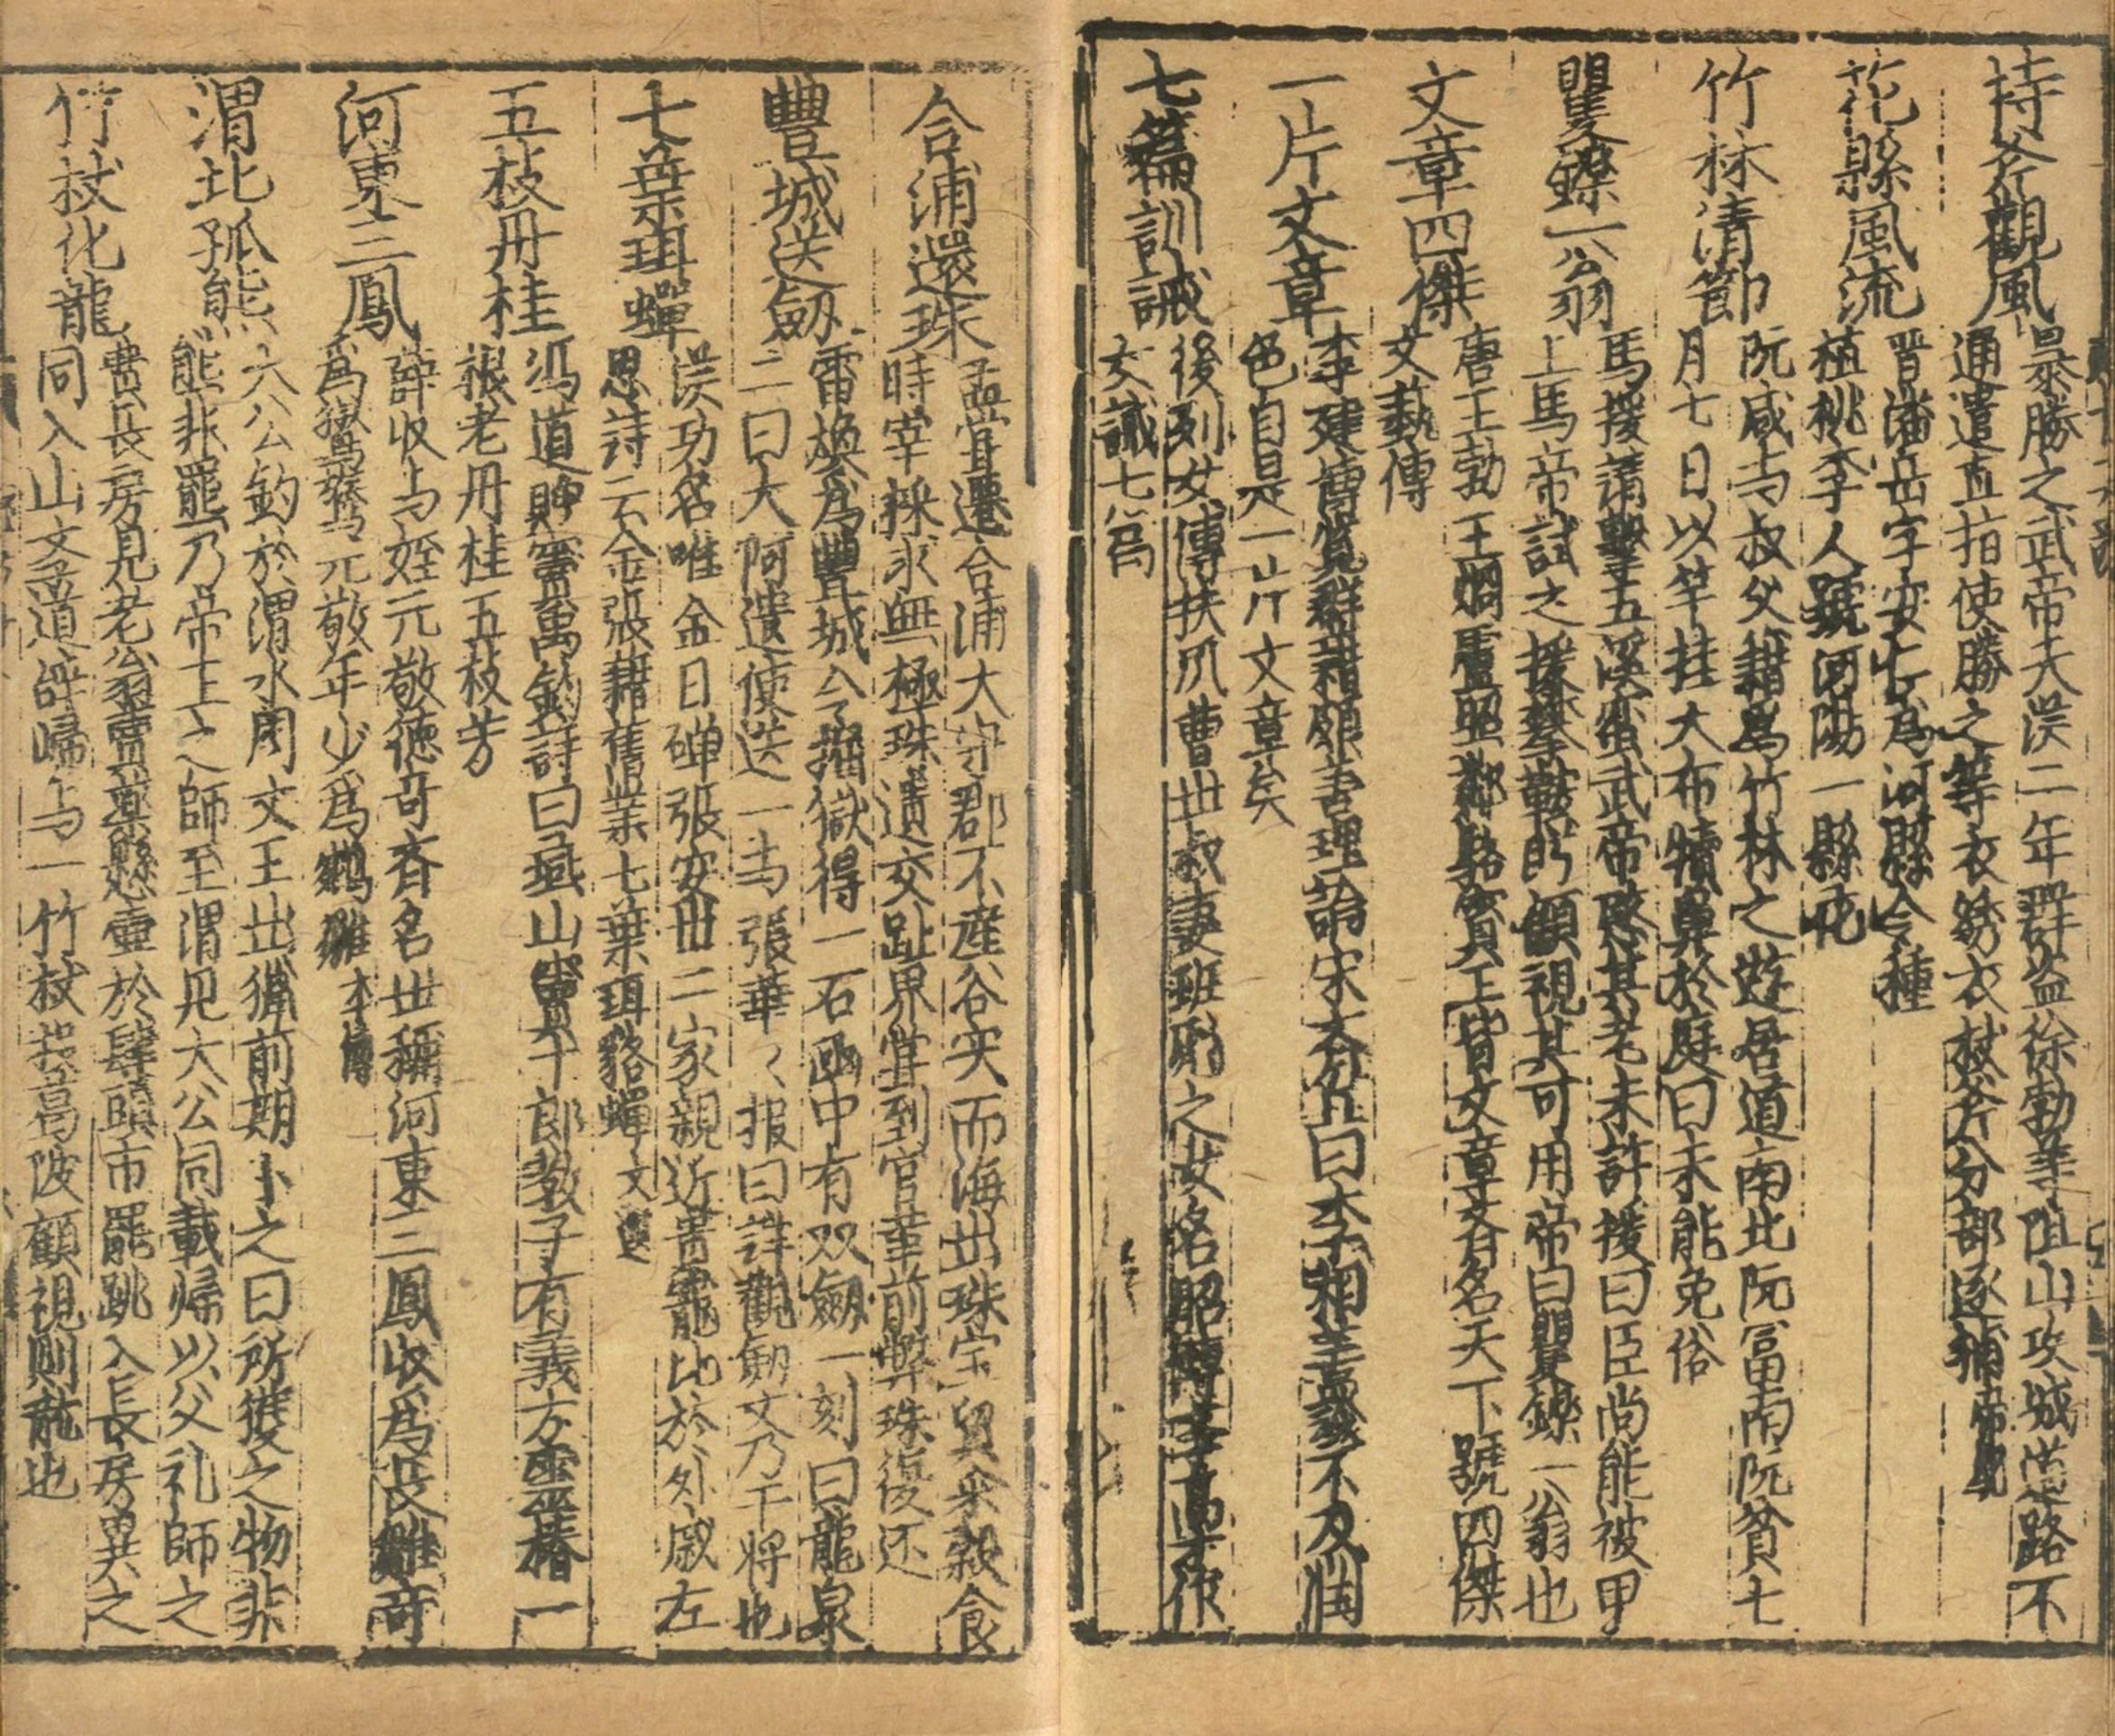 持斧觀風
暴勝之武帝天漢二年群盗徐勃等阻山攻城道路不
通遣直指使勝之等衣綉衣杖斧分部逐捕
花縣風流
晋潘岳字安仁爲河陽縣令種
植桃李人號河陽一縣花
竹林清節
阮咸与叔父籍爲竹林之遊居道南北阮富南阮貧七
月七日以竿挂大布犢鼻於庭曰未能免俗
矍鑠一公翁
馬援請擊五溪蛮武帝愍其老未許援曰臣尚能被甲
上馬帝試之援據鞍顧視其可用帝曰矍鑠一公翁也
文章四傑
唐王勃王楊盧照鄰駱賓王皆文章齐名天下號四傑
文藝傳
一片文章
李建博覧群籍
色自是一片文章矣
七篇訓誡
後列女傳扶風曹世叔妻班彪之女名昭
女誡七篇
合浦還珠
孟甞遷合浦大守郡不産谷实而海出珠宝貿糴食
時宰採求無極珠遺交趾界甞到官革前弊珠復还
豐城送劒
雷焕爲豐城令掘獄得一石函中有双劒一刻曰龍泉
二曰大阿遣使送一与張華〻报曰詳觀劒文乃干将也
七葉珥蟬
漢功名唯金日磾張安世二家親近貴寵比於外戚左
思詩云金張藉舊業七葉珥貂蟬文選
五枝丹桂
馮道贈竇禹鈞詩曰燕山竇十郎敎子有義方灵椿一
根老丹桂五枝芳
河東三鳳
薛收与姪元敬德音齐名世稱河東三鳳收爲長雛
爲鸑鷟元敬年少爲鵷雛本傳
渭北孤熊
六公釣於渭水周文王出猟前期卜之曰所獲之物非
熊非羆乃帝王之師至渭見大公同載帰以父礼師之
竹杖化龍
費長房見老翁賣藥懸壷於肆頭市罷跳入長房異之
同入山文道辞帰与一竹杖投葛陂顧視則龍也